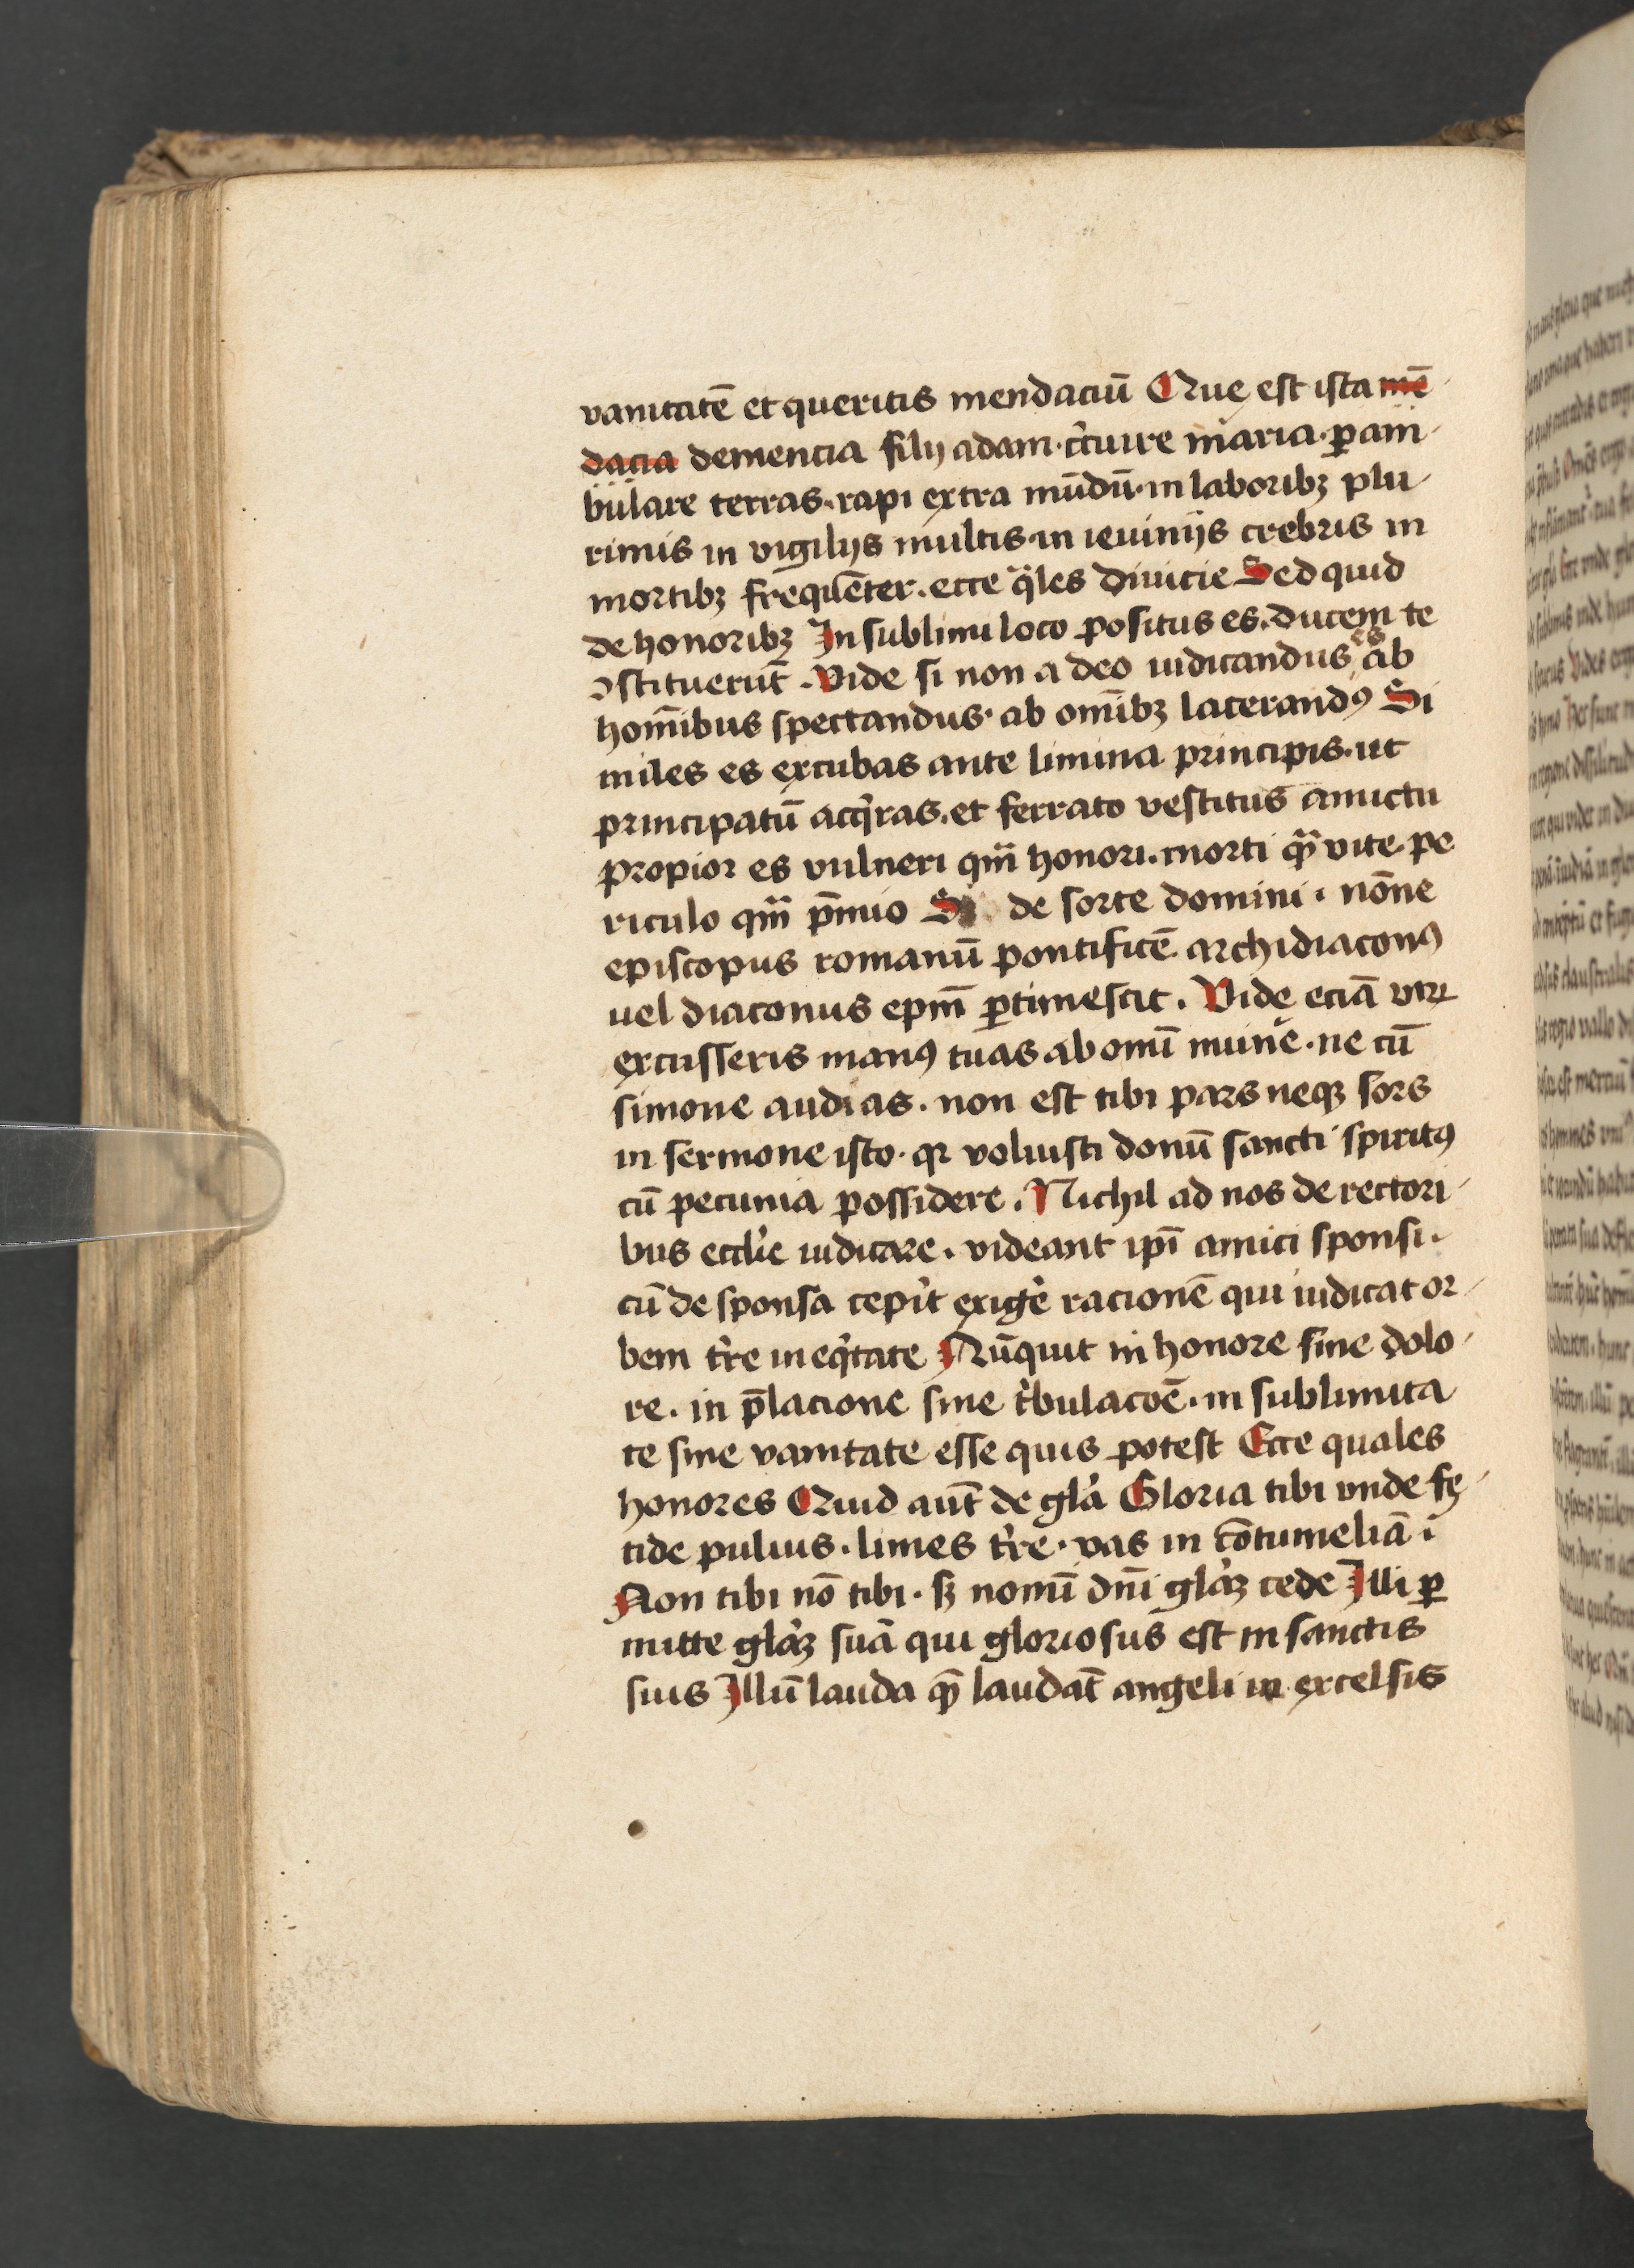 vanitatē et queritis mendaciū Que est ista mē
dacia demencia filij adam. cͥcuire maria. ꝑam
bulare terras. rapi extra mūdū. in laboribꝫ plu
rimis in vigilijs multis. in ieiunijs crebris in
mortibꝫ frequēter. ecce qͣles diuicie Sed quid
de honoribꝫ In sublimi loco positus es. ducem te
ꝯstituerūt. Vide si non a deo iudicandus es ab
homībus spectandus. ab omībꝫ lacerandꝰ Si
miles es excubas ante limina principis. ut
principatū acqͥras. et ferrato vestitus amictu
propior es vulneri qͣm honori. morti qͣ vite. pe
riculo qͣm p̄mio Si de sorte domini. nōne
episcopus romanū pontificē. archidiaconꝰ
uel diaconus epm̄ ꝑtimescit. Vide eciā vtrū
excusseris manꝰ tuas ab omī mun̄e. ne cū
simone audias. non est tibi pars neqꝫ sors
in sermone isto. qꝛ voluisti donū sancti spiritꝰ
cū pecunia possidere. Nichil ad nos de rectori
bus eccl̓ie iudicare. videant ip̄i amici sponsi.
cū de sponsa cep̓it exig̓e racionē qui iudicat or
bem t̓re in eqͥtate Nūquit in honore sine dolo
re. in p̄lacione sine tͥbulacōe. in sublimita
te sine vanitate esse quis potest Ecce quales
honores Quid aūt de gl̓a Gloria tibi vnde fe
tide puluis. limes t̓re. vas in cōtumeliā.
Non tibi nō tibi. sꝫ nomī dn̄i gl̓aꝫ cede Illi ꝑ
mitte gl̓aꝫ suā qui gloriosus est in sanctis
suis Illū lauda qͣ̄ laudāt angeli in excelsis